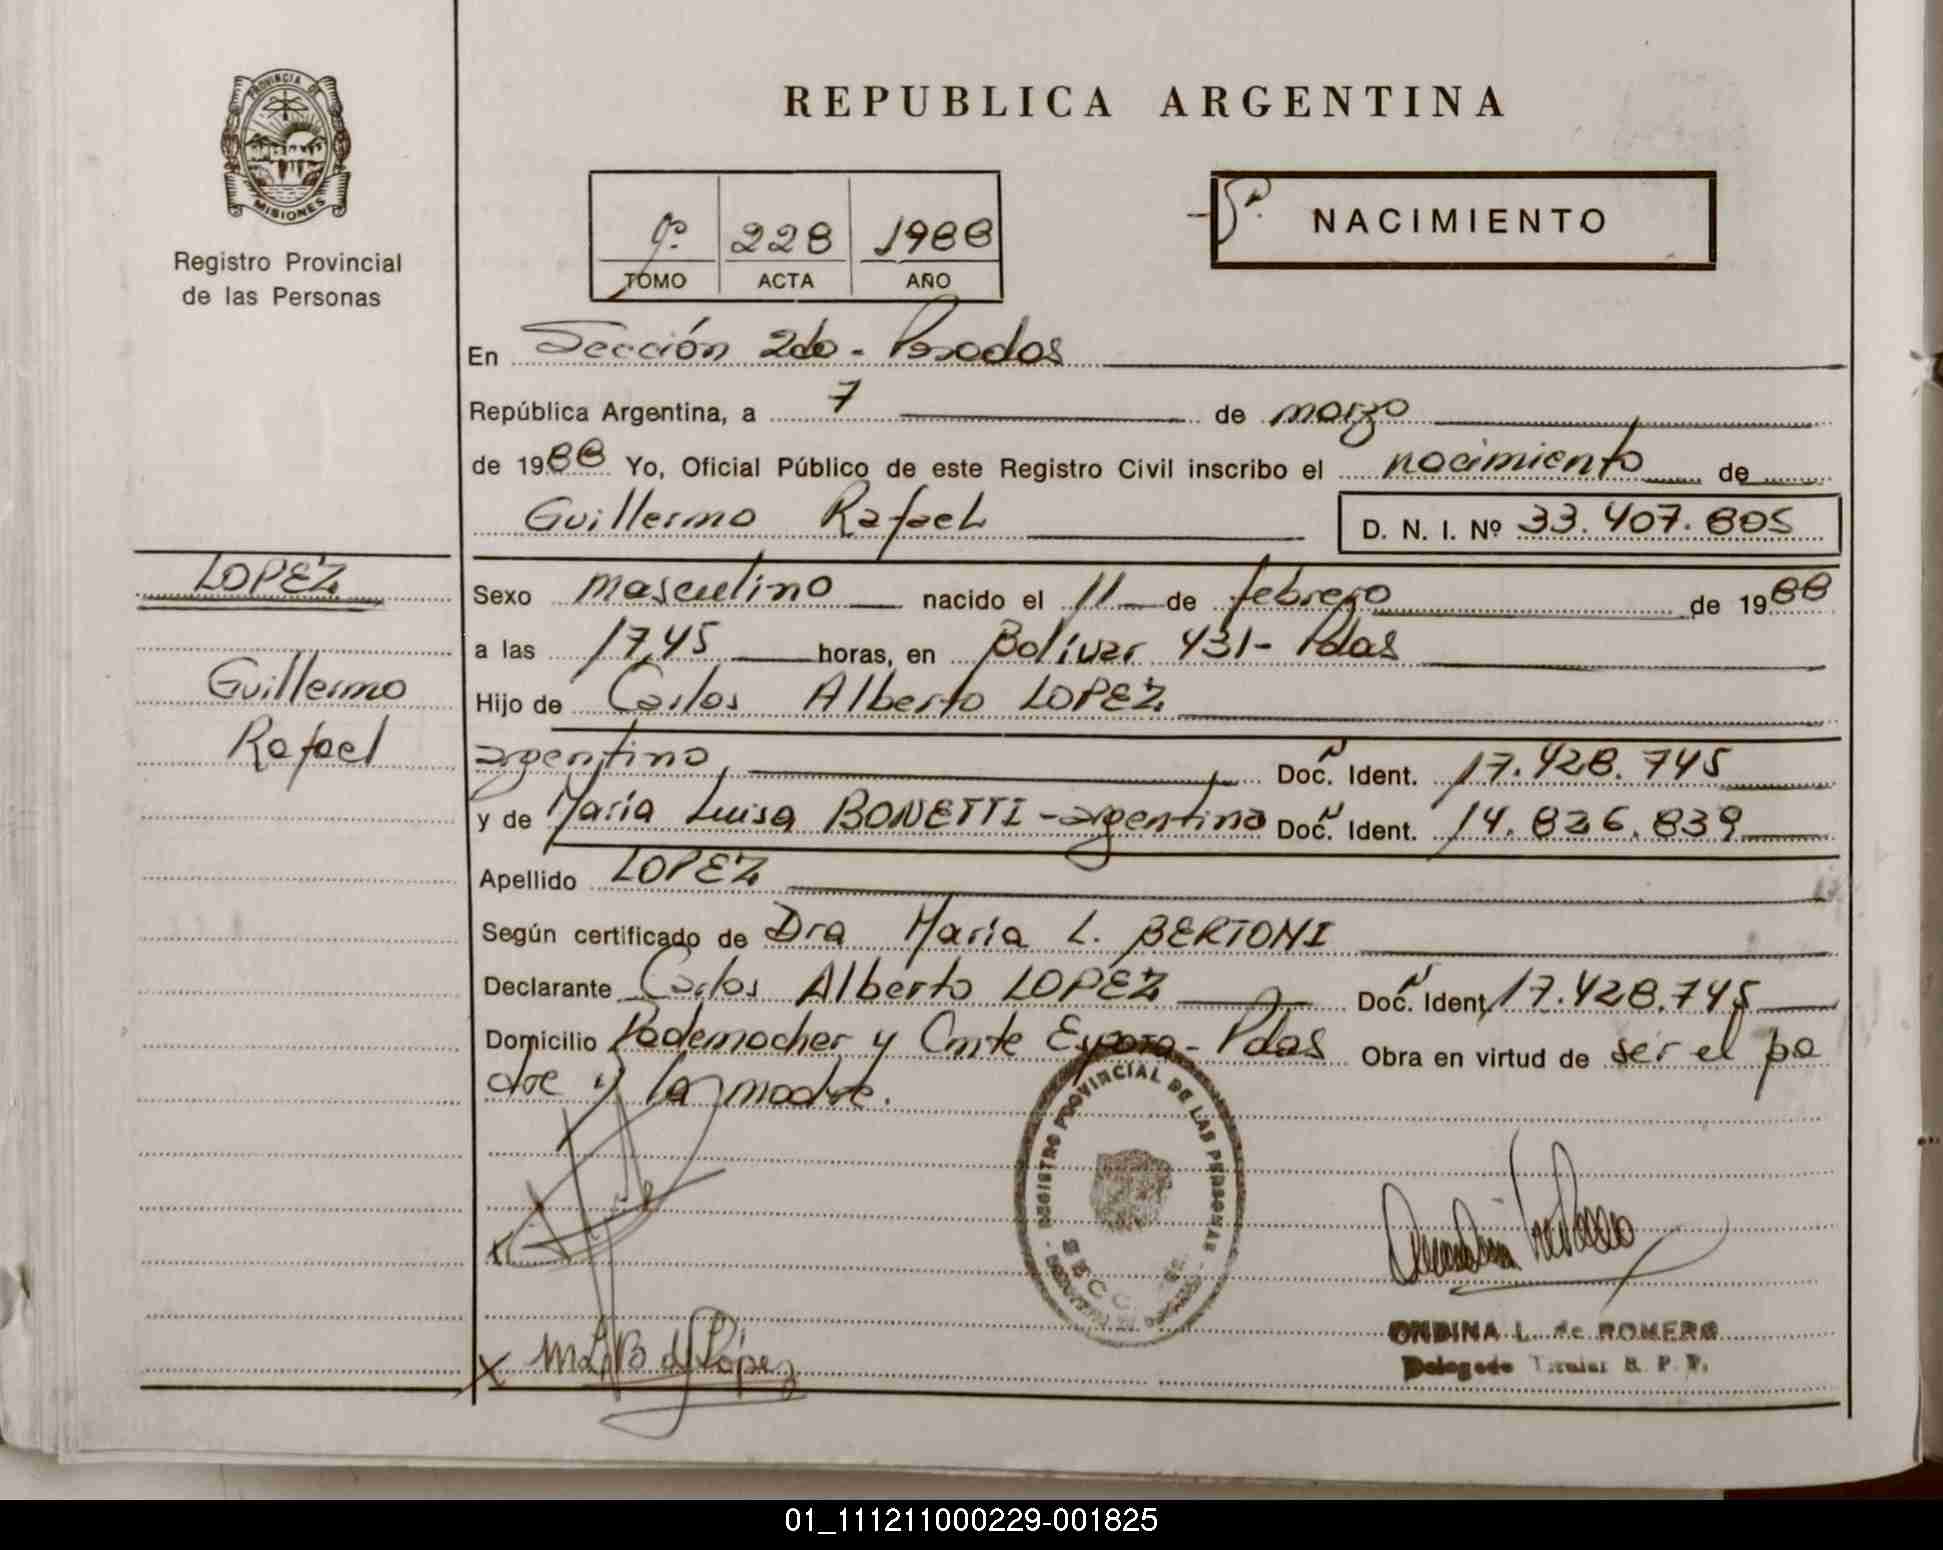 PROVINCIA DE
MISIONES
Registro Provincial
de las Personas
REPUBLICA ARGENTINA
228 1988
TOMO ACTA AÑO
NACIMIENTO
En Sección 2do - Posadas
República Argentina, a 7 de marzo
de 1988 Yo, Oficial Público de este Registro Civil inscribo el nacimiento de
Guillermo Rafael D. N. I. Nº 33.407.805
LOPEZ
Guillermo
Rafael
Sexo masculino nacido el 11 de febrero de 1988
a las 17,45 horas, en Bolívar 431- Pdas
Hijo de Carlos Alberto LOPEZ
argentino Doc. Ident. 17.428.745
y de María Luisa BONETTI - argentina Doc. Ident. 14.826.839
Apellido LOPEZ
Según certificado de Dra María L. BERTONI
Declarante Carlos Alberto LOPEZ Doc. Ident. 17.428.745
Domicilio y Cmte Espora - Pdas Obra en virtud de ser el pa
dre y la madre.
REGISTRO PROVINCIAL DE LAS PERSONAS
SECC
M L B d López
ONDINA L. de ROMERO
Delegado Titular R. P. P.
01_111211000229-001825